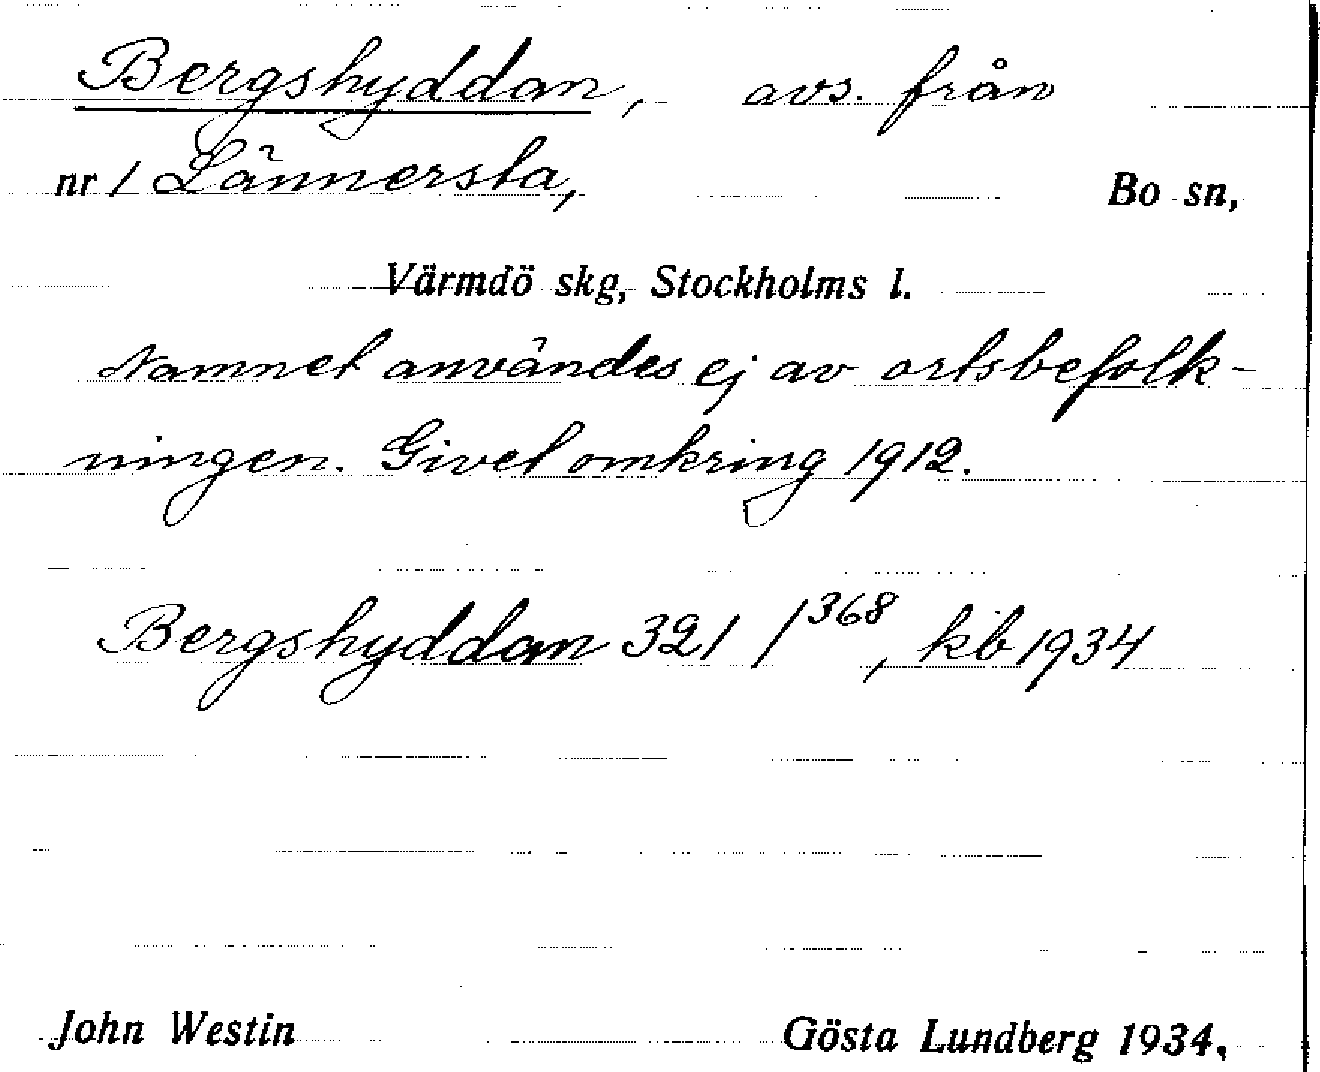 Bergshyddan, avs. från
nr 1 Lännersta, Bo sn,
Värmdö skg, Stockholms l.
Namnet användes ej av ortsbefolk-
ningen. Givet omkring 1912.
Bergshyddan 321 /368, kb 1934
John Westin Gösta Lundberg 1934.